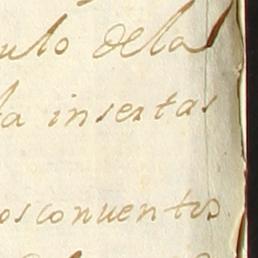 ulo dela
la insertas
os conuentos